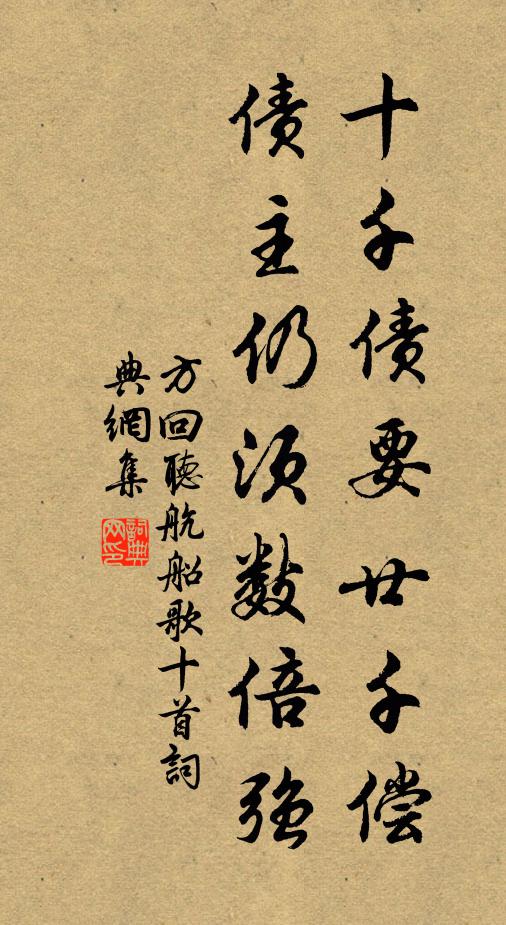 十千债要廿千偿
债主仍须数倍强
方回聽航船歌十首詞
典網集
詞典网印